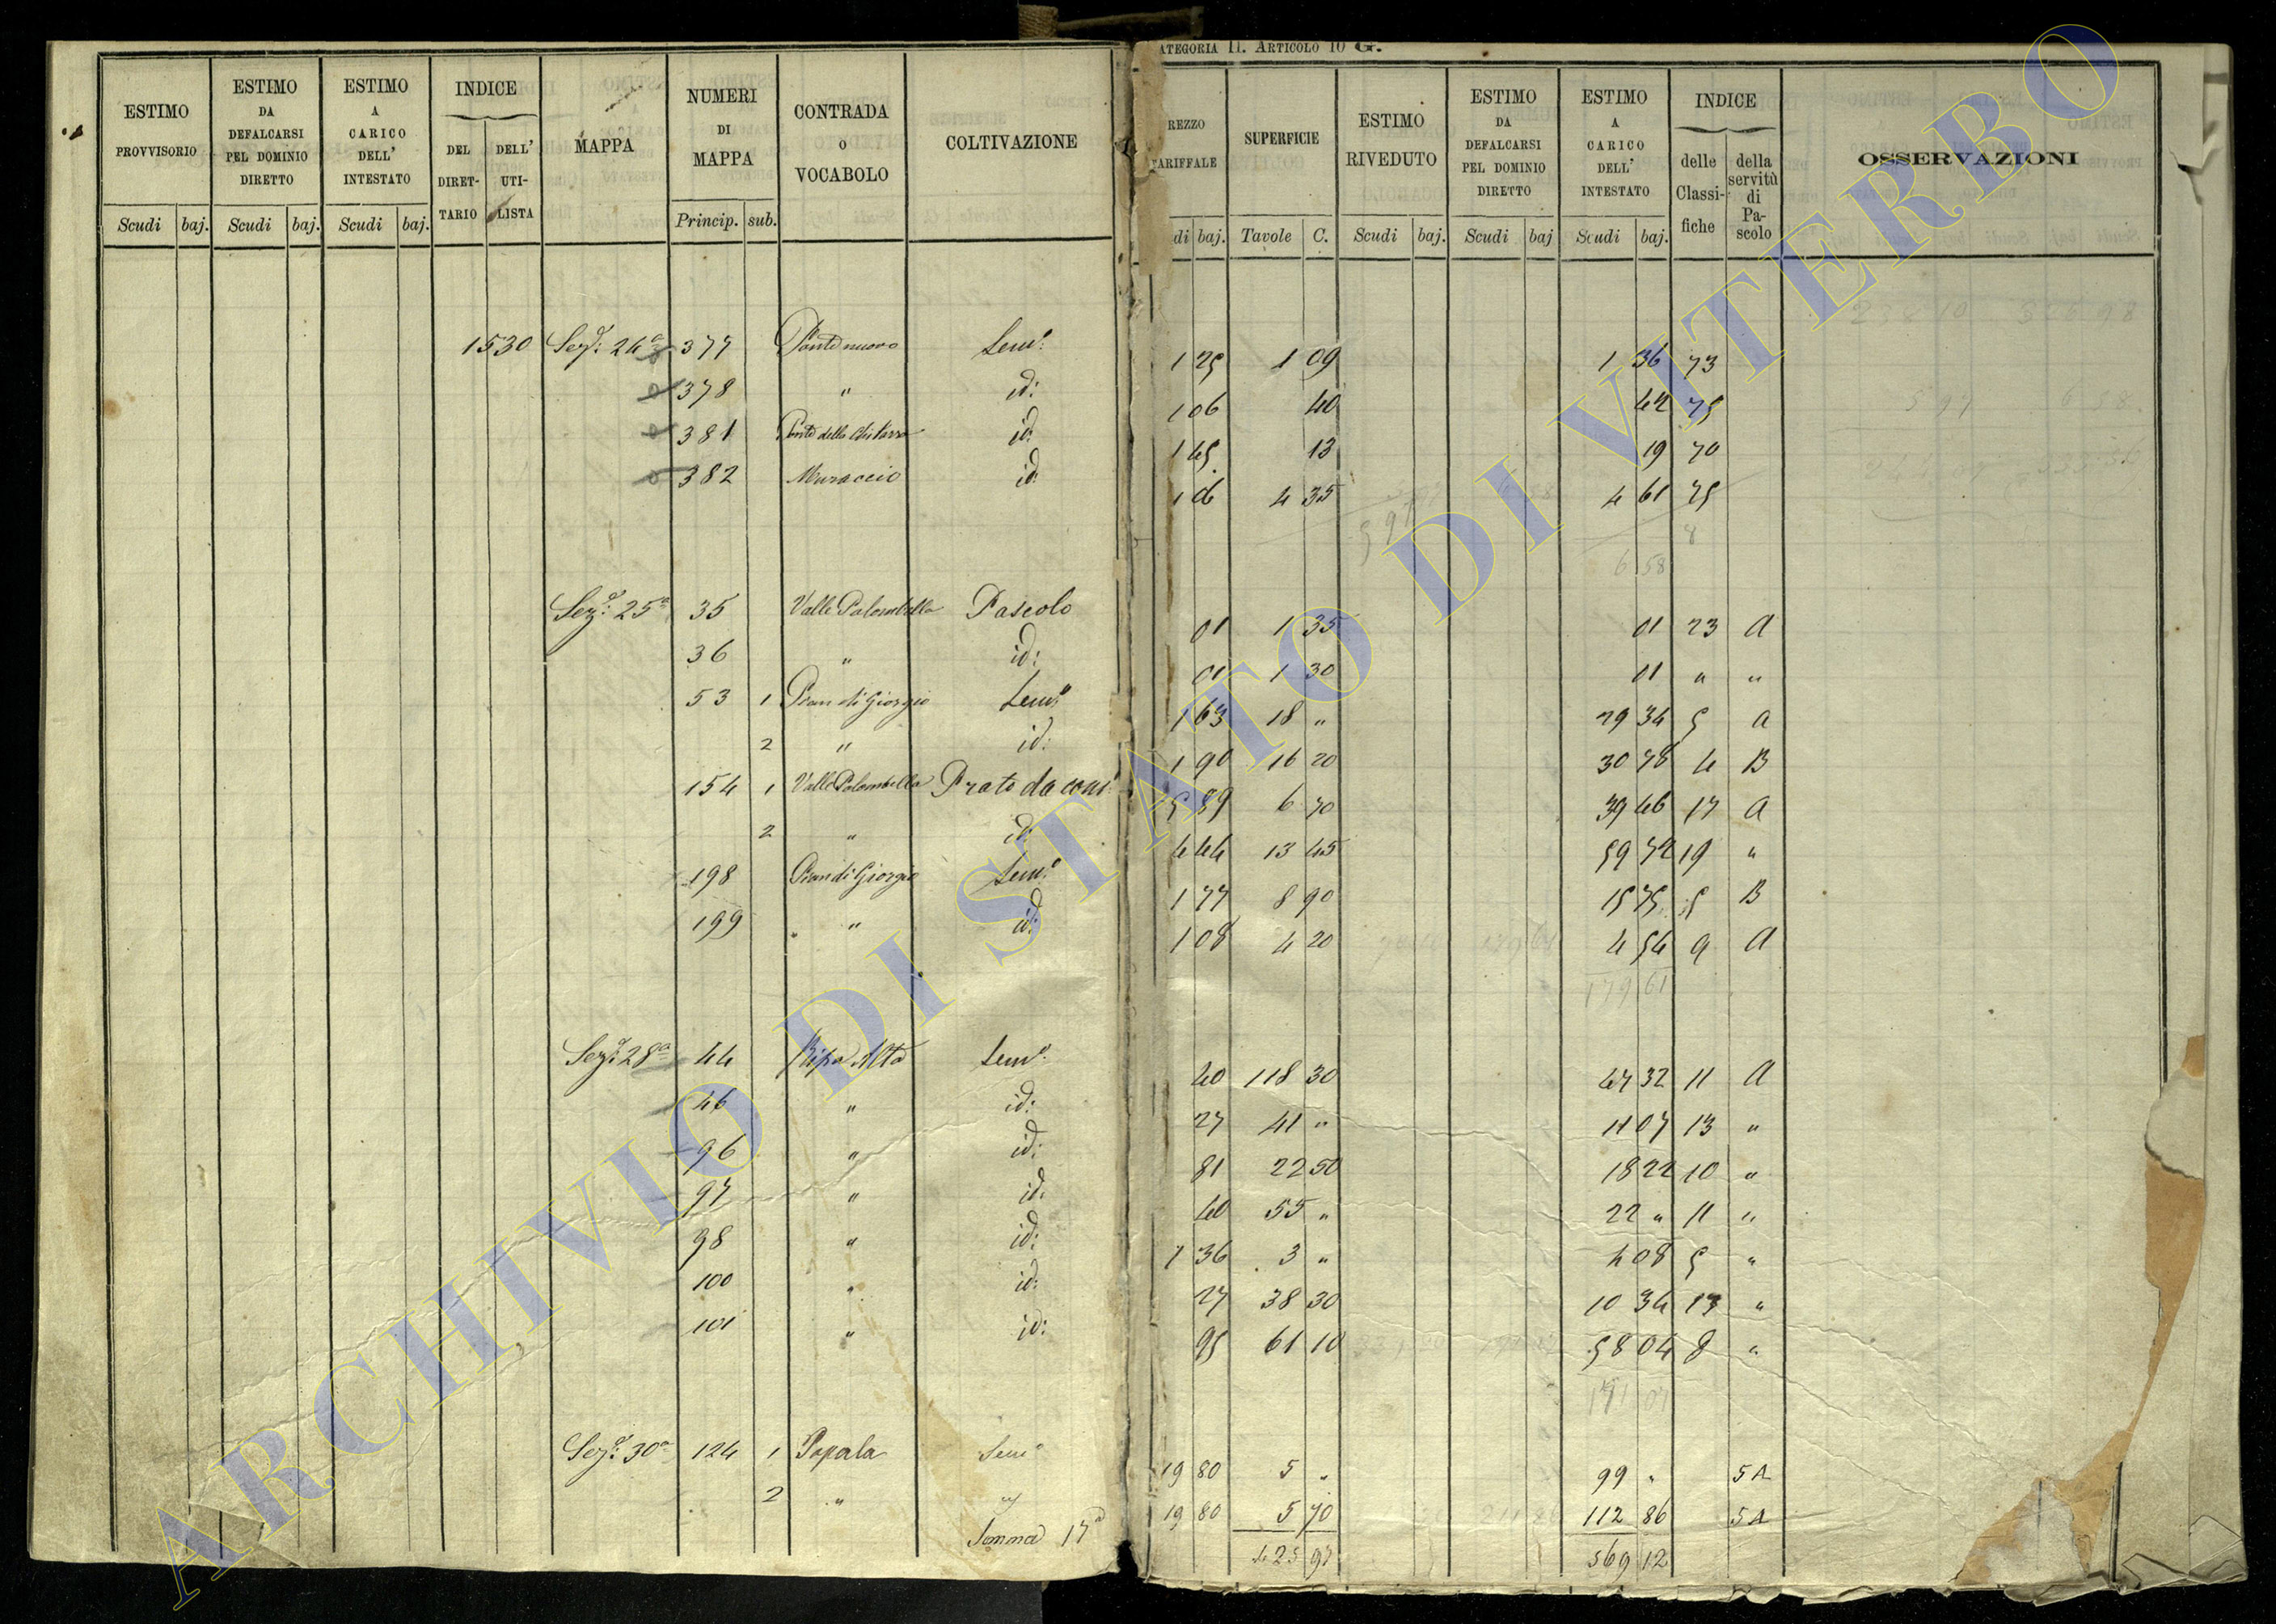 CATEGORIA II. ARTICOLO 10 G.
ESTIMO PROVVISORIO | ESTIMO DA DEFALCARSI PEL DOMINIO DIRETTO | ESTIMO A CARICO DELL' INTESTATO | INDICE DEL DIRETTARIO | DELL' UTILISTA | MAPPA | NUMERI DI MAPPA | CONTRADA O VOCABOLO | COLTIVAZIONE | REZZO TARIFFALE | SUPERFICIE | ESTIMO RIVEDUTO | ESTIMO DA DEFALCARSI PEL DOMINIO DIRETTO | ESTIMO A CARICO DELL' INTESTATO | INDICE delle Classifiche | della servitù di Pascolo | OSSERVAZIONI
Scudi | baj. | Scudi | baj. | Scudi | baj. | Princip. | sub. | di | baj. | Tavole | C. | Scudi | baj. | Scudi | baj | Scudi | baj.
1530 Sez.e 24a 377 Ponte nuovo Sem.o 1 25 1 09 1 36 73
378 " id: 1 06 40 42 75
381 Ponte della Chitarra id: 1 45 13 19 70
382 Muraccio id 1 06 4 35 4 61 75
6 58
Sez.e 25a 35 Valle Palombella Pascolo 01 1 35 01 23 A
36 " id: 01 1 30 01 " "
53 1 Pian di Giorgio Sem.o 1 63 18 " 29 34 5 A
2 " id: 1 90 16 20 30 78 4 B
154 1 Valle Palombella Prato da cons. 5 89 6 70 39 46 17 A
2 " id: 4 44 13 45 59 72 19 "
198 Pian di Giorgio Sem.o 1 77 8 90 15 75 5 B
199 " id: 1 08 4 20 4 54 9 A
179 61
Sez.e 28a 44 Ripa Alta Sem.o 40 118 30 47 32 11 A
46 " id: 27 41 " 11 07 13 "
96 " id: 81 22 50 18 22 10 "
97 " id: 40 55 " 22 " 11 "
98 " id: 1 36 3 " 4 08 5 "
100 " id: 27 38 30 10 34 13 "
101 " id: 95 61 10 58 04 8 "
171 07
Sez.e 30a 124 1 Papala Sem.o 19 80 5 " 99 " 5 A
2 " " 19 80 5 70 112 86 5 A
Somma 17a 425 97 569 12
ARCHIVIO DI STATO DI VITERBO